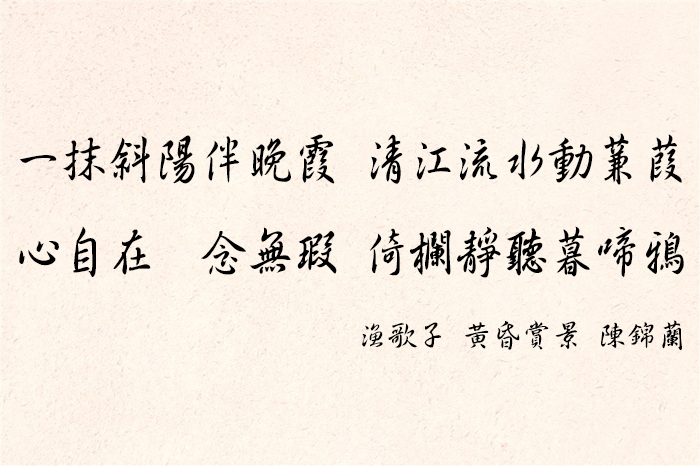 一抹斜陽伴晚霞 清江流水動蒹葭
心自在 念無瑕 倚欄靜聽暮啼鴉
漁歌子 黃昏賞景 陳錦蘭